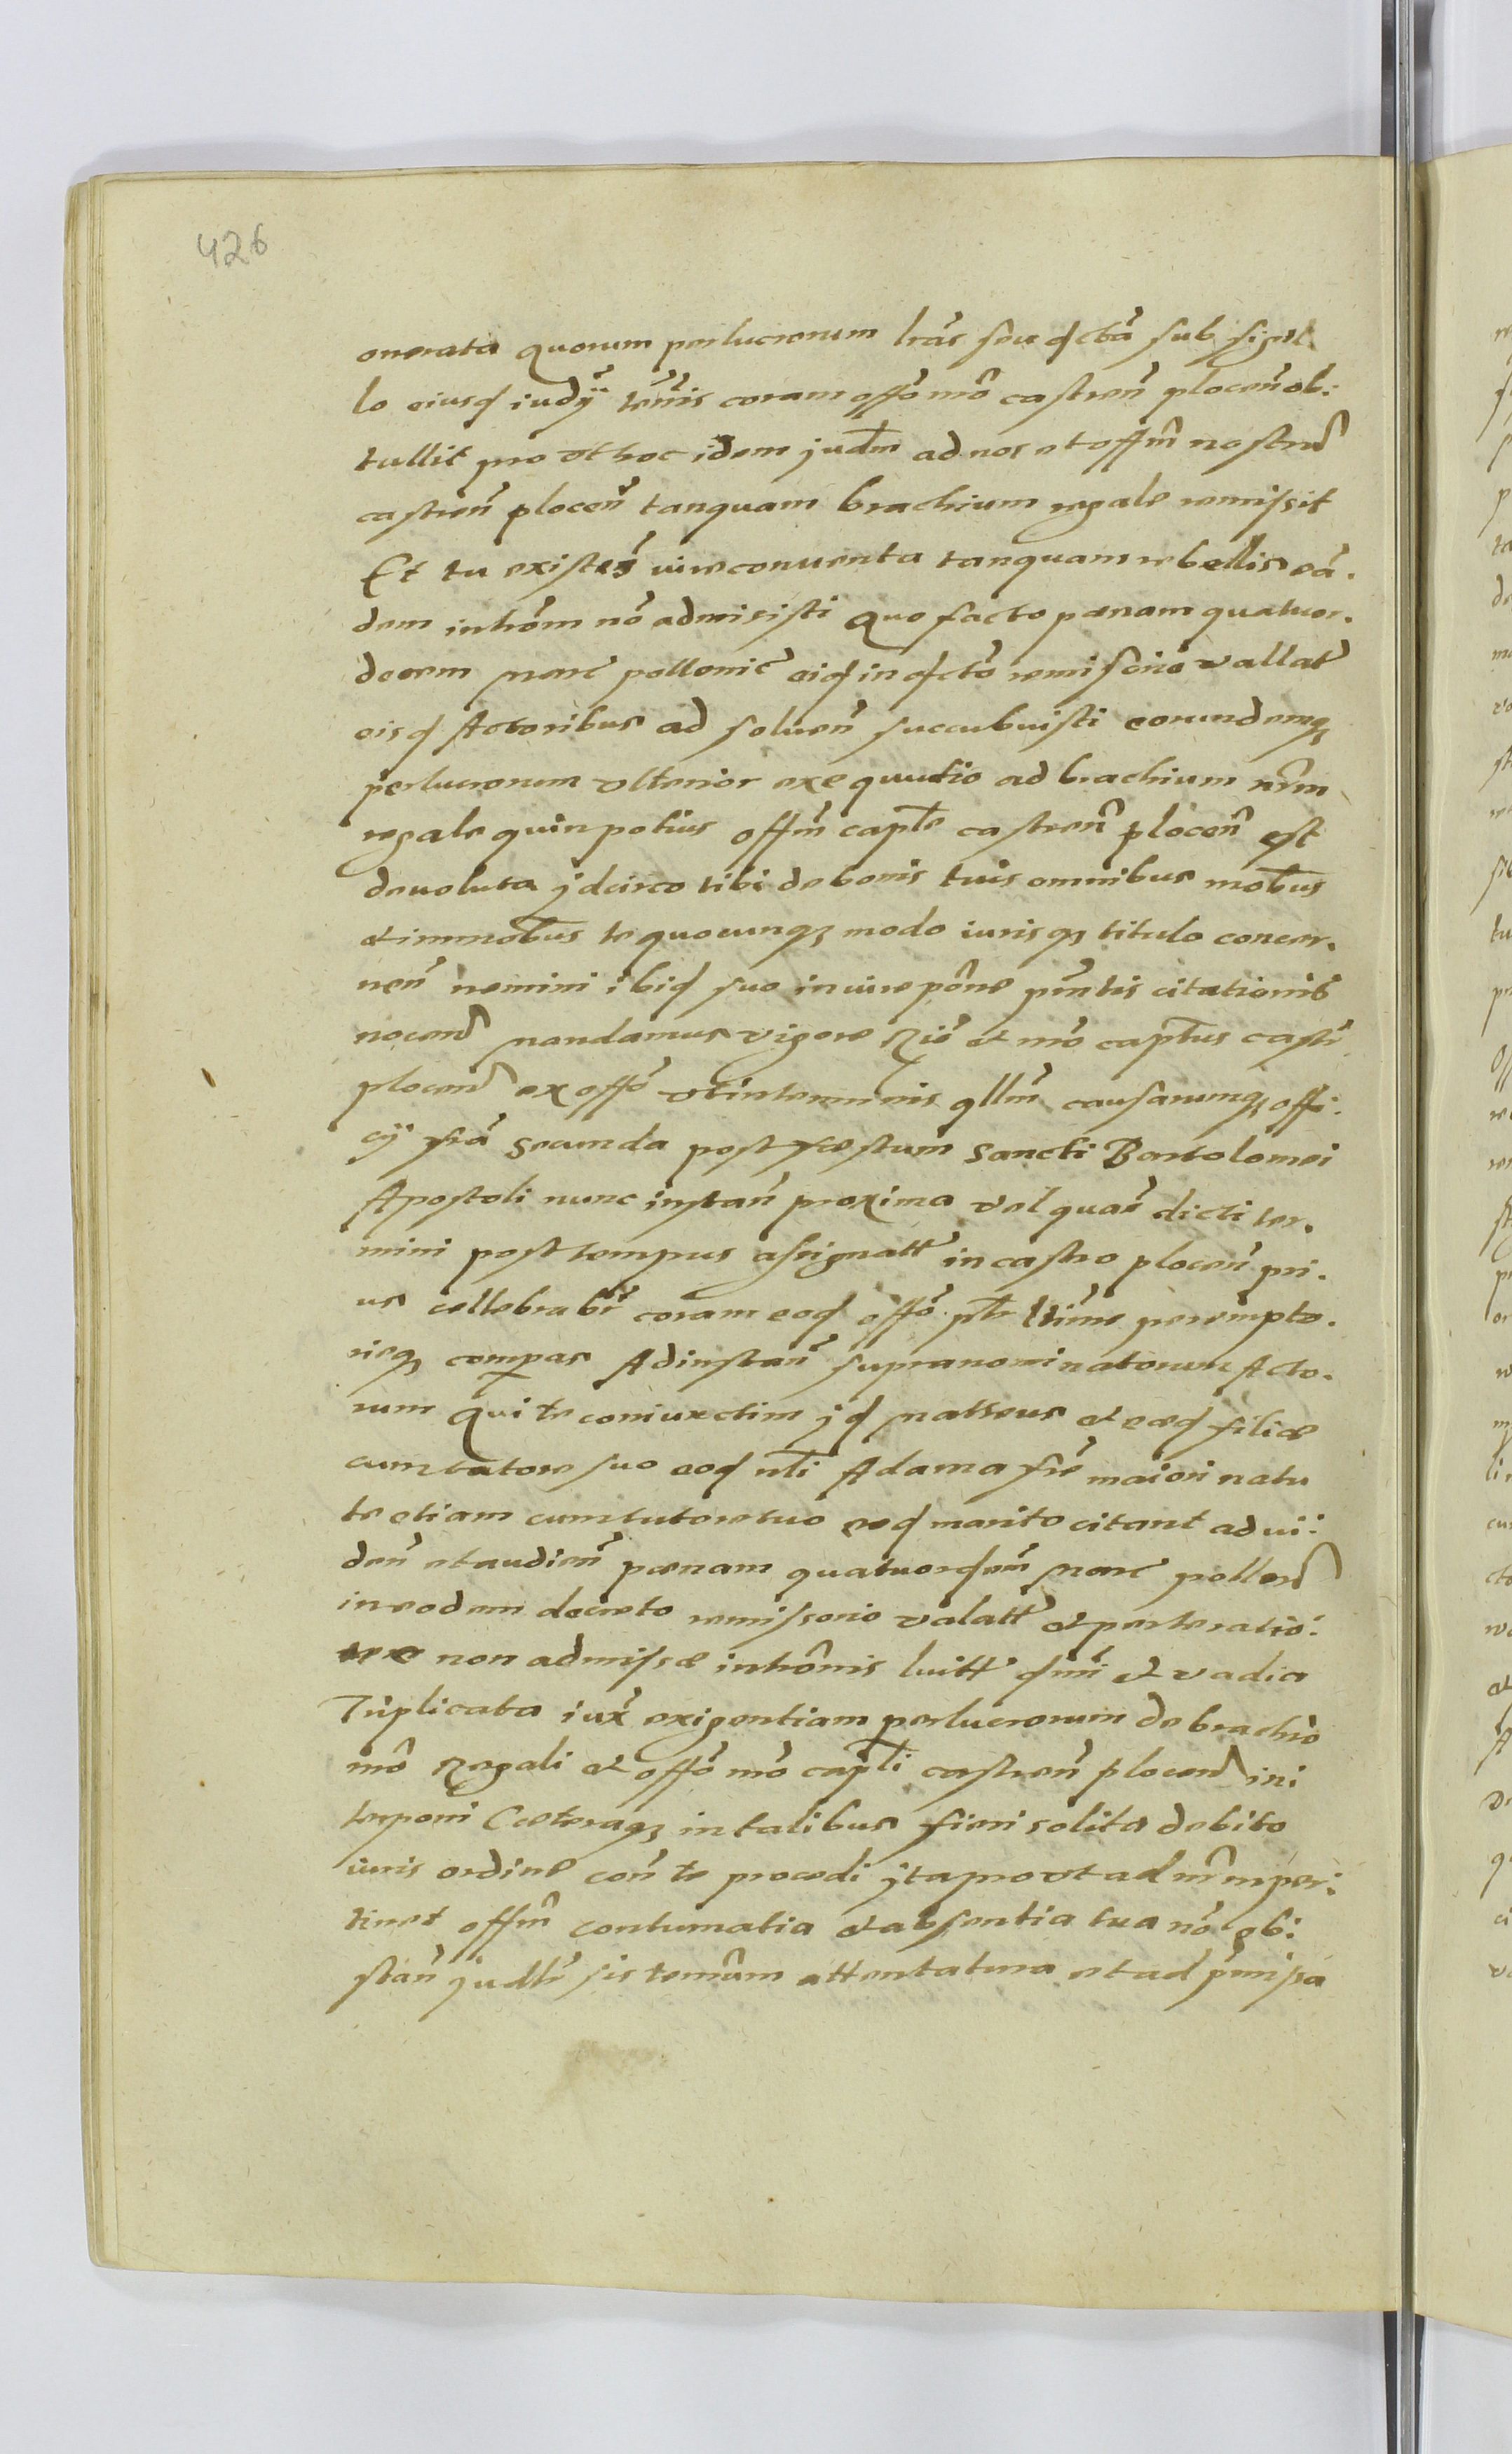 426
onerata quorum perlucrorum lrās seu dctā sub sigil
lo eiusd iudÿ terrīs coram offō nrō castrēn plocēn ob:
tullit pro vt hoc idem judm ad nos et offm̄ nostrū
castrēn plocēn tanquam brachium regale remissit
Et tu existēs iure conuenta tanquam rebellis eā.
dem intrōm nō admisisti Quo facto pœnam quatuor.
decem marc pollonic eid in dctō remissorio vallat
eisd Actoribus ad soluēn succubuisti eorundemq
perlucrorum vlterior exequutio ad brachium nrm
regale quin potius offm̄ caple castrēn plocēn est
deuoluta jdcirco tibi de bonis tuis omnibus mobus
et immobus te quocunq modo iurisq titulo concer.
nēn nemini ibid suo in iure pōne pn̄tis citationis
nocen mandamus vigore Rīe et nrō captus castr
plocen ex offō vt in terminis qllm̄ causarumq offi:
cÿ friā secunda post festum Sancti Bartolomei
Apostoli nunc instān proxima vel quān dicti ter.
mini post tempus assignatt in castro plocēn pri.
us cellebrabr coram eod offō ptr ltime perempto.
rieq compas Ad instān supranominatorum Acto.
rum Qui te coniunctim jd Matteus et eæd filiæ
cum tutore suo eod nli Adama frē maiori natu
te etiam cum tutore tuo eod marito citant ad vi:
dēn et audiēn pœnam quatuordem̄ Marc pollen
in eodem decreto remissorio valatt et per te ratiō:
non admissæ intrōmis luitt dmī et vadia
Triplicata iuxᵗ exigentiam perlucrorum de brachio
nrō Regali et offō nrō capli castrēn plocen ini
terponi Cæteraq in talibus fieri solita debito
iuris ordine con te procedi jta pro vt ad nrm per:
tinet offm̄ contumatia et absentia tua nō ob:
stān judlr sis termūm attentatura et ad pmissa